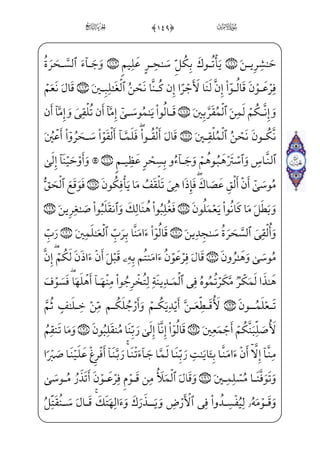 سورة الأعراف ﴿١٤٩﴾ الجزء التاسع
حَـٰشِرِينَ ١١١ يَأْتُوكَ بِكُلِّ سَـٰحِرٍ عَلِيمٍ ١١٢ وَجَآءَ ٱلسَّحَرَةُ
فِرْعَوْنَ قَالُوٓا۟ إِنَّ لَنَا لَأَجْرًا إِن كُنَّا نَحْنُ ٱلْغَـٰلِبِينَ ١١٣ قَالَ نَعَمْ
وَإِنَّكُمْ لَمِنَ ٱلْمُقَرَّبِينَ ١١٤ قَالُوا۟ يَـٰمُوسَىٰٓ إِمَّآ أَن تُلْقِىَ وَإِمَّآ أَن
نَّكُونَ نَحْنُ ٱلْمُلْقِينَ ١١٥ قَالَ أَلْقُوا۟ ۖ فَلَمَّآ أَلْقَوْا۟ سَحَرُوٓا۟ أَعْيُنَ
ٱلنَّاسِ وَٱسْتَرْهَبُوهُمْ وَجَآءُو بِسِحْرٍ عَظِيمٍ ١١٦ ۞ وَأَوْحَيْنَآ إِلَىٰ
مُوسَىٰٓ أَنْ أَلْقِ عَصَاكَ ۖ فَإِذَا هِىَ تَلْقَفُ مَا يَأْفِكُونَ ١١٧ فَوَقَعَ ٱلْحَقُّ
وَبَطَلَ مَا كَانُوا۟ يَعْمَلُونَ ١١٨ فَغُلِبُوا۟ هُنَالِكَ وَٱنقَلَبُوا۟ صَـٰغِرِينَ ١١٩
وَأُلْقِىَ ٱلسَّحَرَةُ سَـٰجِدِينَ ١٢٠ قَالُوٓا۟ ءَامَنَّا بِرَبِّ ٱلْعَـٰلَمِينَ ١٢١ رَبِّ
مُوسَىٰ وَهَـٰرُونَ ١٢٢ قَالَ فِرْعَوْنُ ءَامَنتُم بِهِۦ قَبْلَ أَنْ ءَاذَنَ لَكُمْ ۖ إِنَّ
هَـٰذَا لَمَكْرٌ مَّكَرْتُمُوهُ فِى ٱلْمَدِينَةِ لِتُخْرِجُوا۟ مِنْهَآ أَهْلَهَا ۖ فَسَوْفَ
تَعْلَمُونَ ١٢٣ لَأُقَطِّعَنَّ أَيْدِيَكُمْ وَأَرْجُلَكُم مِّنْ خِلَـٰفٍ ثُمَّ
لَأُصَلِّبَنَّكُمْ أَجْمَعِينَ ١٢٤ قَالُوٓا۟ إِنَّآ إِلَىٰ رَبِّنَا مُنقَلِبُونَ ١٢٥ وَمَا تَنقِمُ
مِنَّآ إِلَّآ أَنْ ءَامَنَّا بِـَٔايَـٰتِ رَبِّنَا لَمَّا جَآءَتْنَا ۚ رَبَّنَآ أَفْرِغْ عَلَيْنَا صَبْرًا
وَتَوَفَّنَا مُسْلِمِينَ ١٢٦ وَقَالَ ٱلْمَلَأُ مِن قَوْمِ فِرْعَوْنَ أَتَذَرُ مُوسَىٰ
وَقَوْمَهُۥ لِيُفْسِدُوا۟ فِى ٱلْأَرْضِ وَيَذَرَكَ وَءَالِهَتَكَ ۚ قَالَ سَنُقَتِّلُ